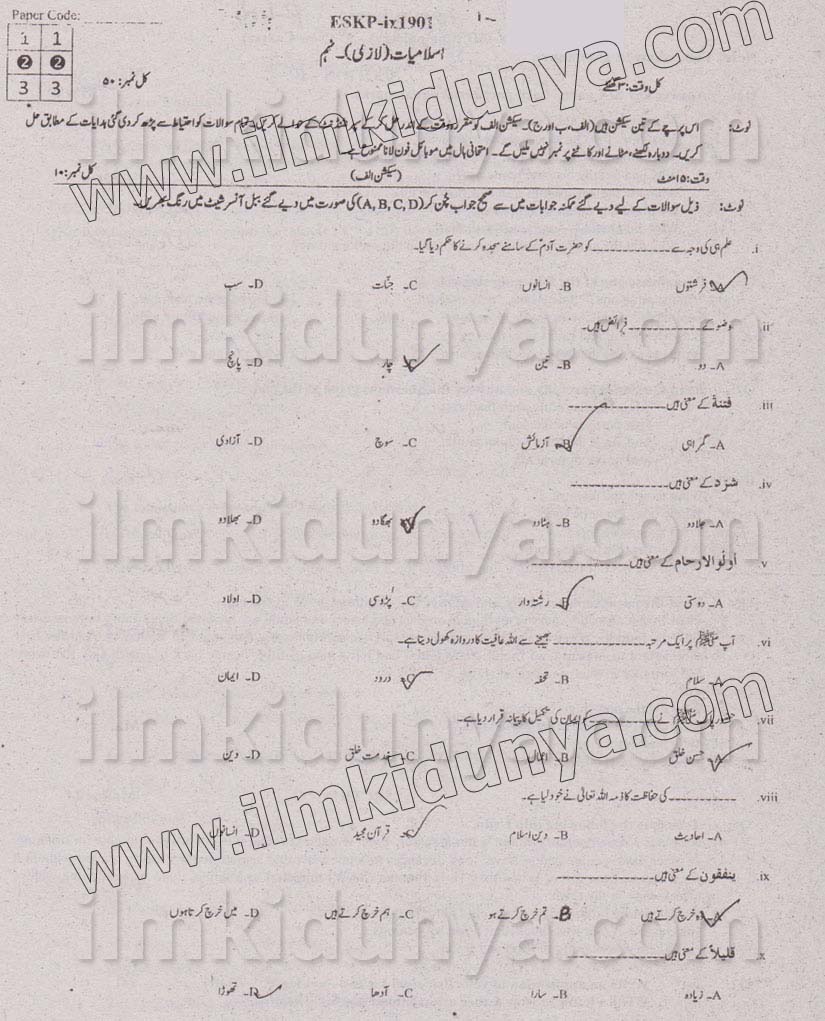 Paper Code:
ESKP-ix1901
1 1
2 2
3 3
اسلامیات (لازمی)۔ نہم
کل وقت: ۳ گھنٹے
کل نمبر: ۵۰
نوٹ: اس پرچے کے تین سیکشن ہیں (الف، ب اور ج)۔ سیکشن الف کو مقررہ وقت کے اندر حل کر کے سپرنٹنڈنٹ کے حوالے کریں۔ تمام سوالات کو احتیاط سے پڑھ کر دی گئی ہدایات کے مطابق حل
کریں۔ دوبارہ لکھنے، مٹانے اور کاٹنے پر نمبر نہیں ملیں گے۔ امتحانی ہال میں موبائل فون لانا ممنوع ہے۔
وقت: ۱۵ منٹ (سیکشن الف) کل نمبر: ۱۰
نوٹ: ذیل سوالات کے لیے دیے گئے ممکنہ جوابات میں سے صحیح جواب چُن کر (A, B, C, D) کی صورت میں دیے گئے ببل آنسر شیٹ میں رنگ بھریں۔
i. علم ہی کی وجہ سے ---------- کو حضرت آدمؑ کے سامنے سجدہ کرنے کا حکم دیا گیا۔
A۔ فرشتوں B۔ انسانوں C۔ جنّات D۔ سب
ii. وضو کے ---------- فرائض ہیں۔
A۔ دو B۔ تین C۔ چار D۔ پانچ
iii. فتنۃ کے معنی ہیں ----------
A۔ گمراہی B۔ آزمائش C۔ سوچ D۔ آزادی
iv. شرّد کے معنی ہیں ----------
A۔ جلادو B۔ ہٹادو C۔ بھگادو D۔ بھلادو
v. اُولُوالارحام کے معنی ہیں ----------
A۔ دوستی B۔ رشتہ دار C۔ پڑوسی D۔ اولاد
vi. آپ ﷺ پر ایک مرتبہ ---------- بھیجنے سے اللہ عافیت کا دروازہ کھول دیتا ہے۔
A۔ سلام B۔ تحفہ C۔ درود D۔ ایمان
vii. حضور پاک ﷺ نے ---------- کو ایمان کی تکمیل کا پیمانہ قرار دیا ہے۔
A۔ حسن خلق B۔ اعمال C۔ خدمت خلق D۔ دین
viii. ---------- کی حفاظت کا ذمہ اللہ تعالیٰ نے خود لیا ہے۔
A۔ احادیث B۔ دین اسلام C۔ قرآن مجید D۔ انسانوں
ix. ینفقون کے معنی ہیں ----------
A۔ وہ خرچ کرتے ہیں B۔ تم خرچ کرتے ہو C۔ ہم خرچ کرتے ہیں D۔ میں خرچ کرتا ہوں
x. قلیلاً کے معنی ہیں ----------
A۔ زیادہ B۔ سارا C۔ آدھا D۔ تھوڑا
www.ilmkidunya.com
www.ilmkidunya.com
ilmkidunya.com
ilmkidunya.com
ilmkidunya.com
ilmkidunya.com
ilmkidunya.com